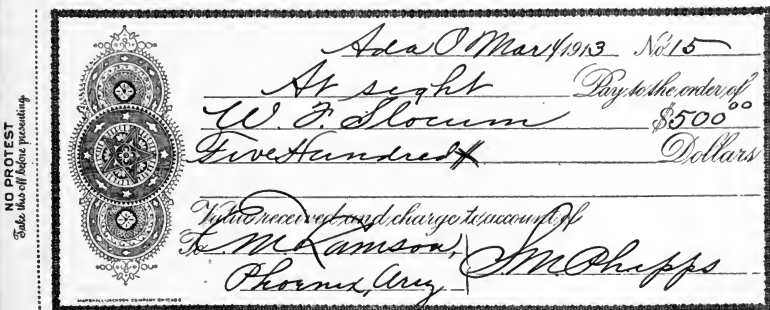 NO PROTEST
Take this off before presenting
Ada O Mar 1/1913 No 15
At sight Pay to the order of
W. F. Slocum $500 00
Five Hundred Dollars
Value received and charge to account of
To M Lamson, J M Phipps
Phoenix, Ariz
MARSHALL-JACKSON COMPANY CHICAGO